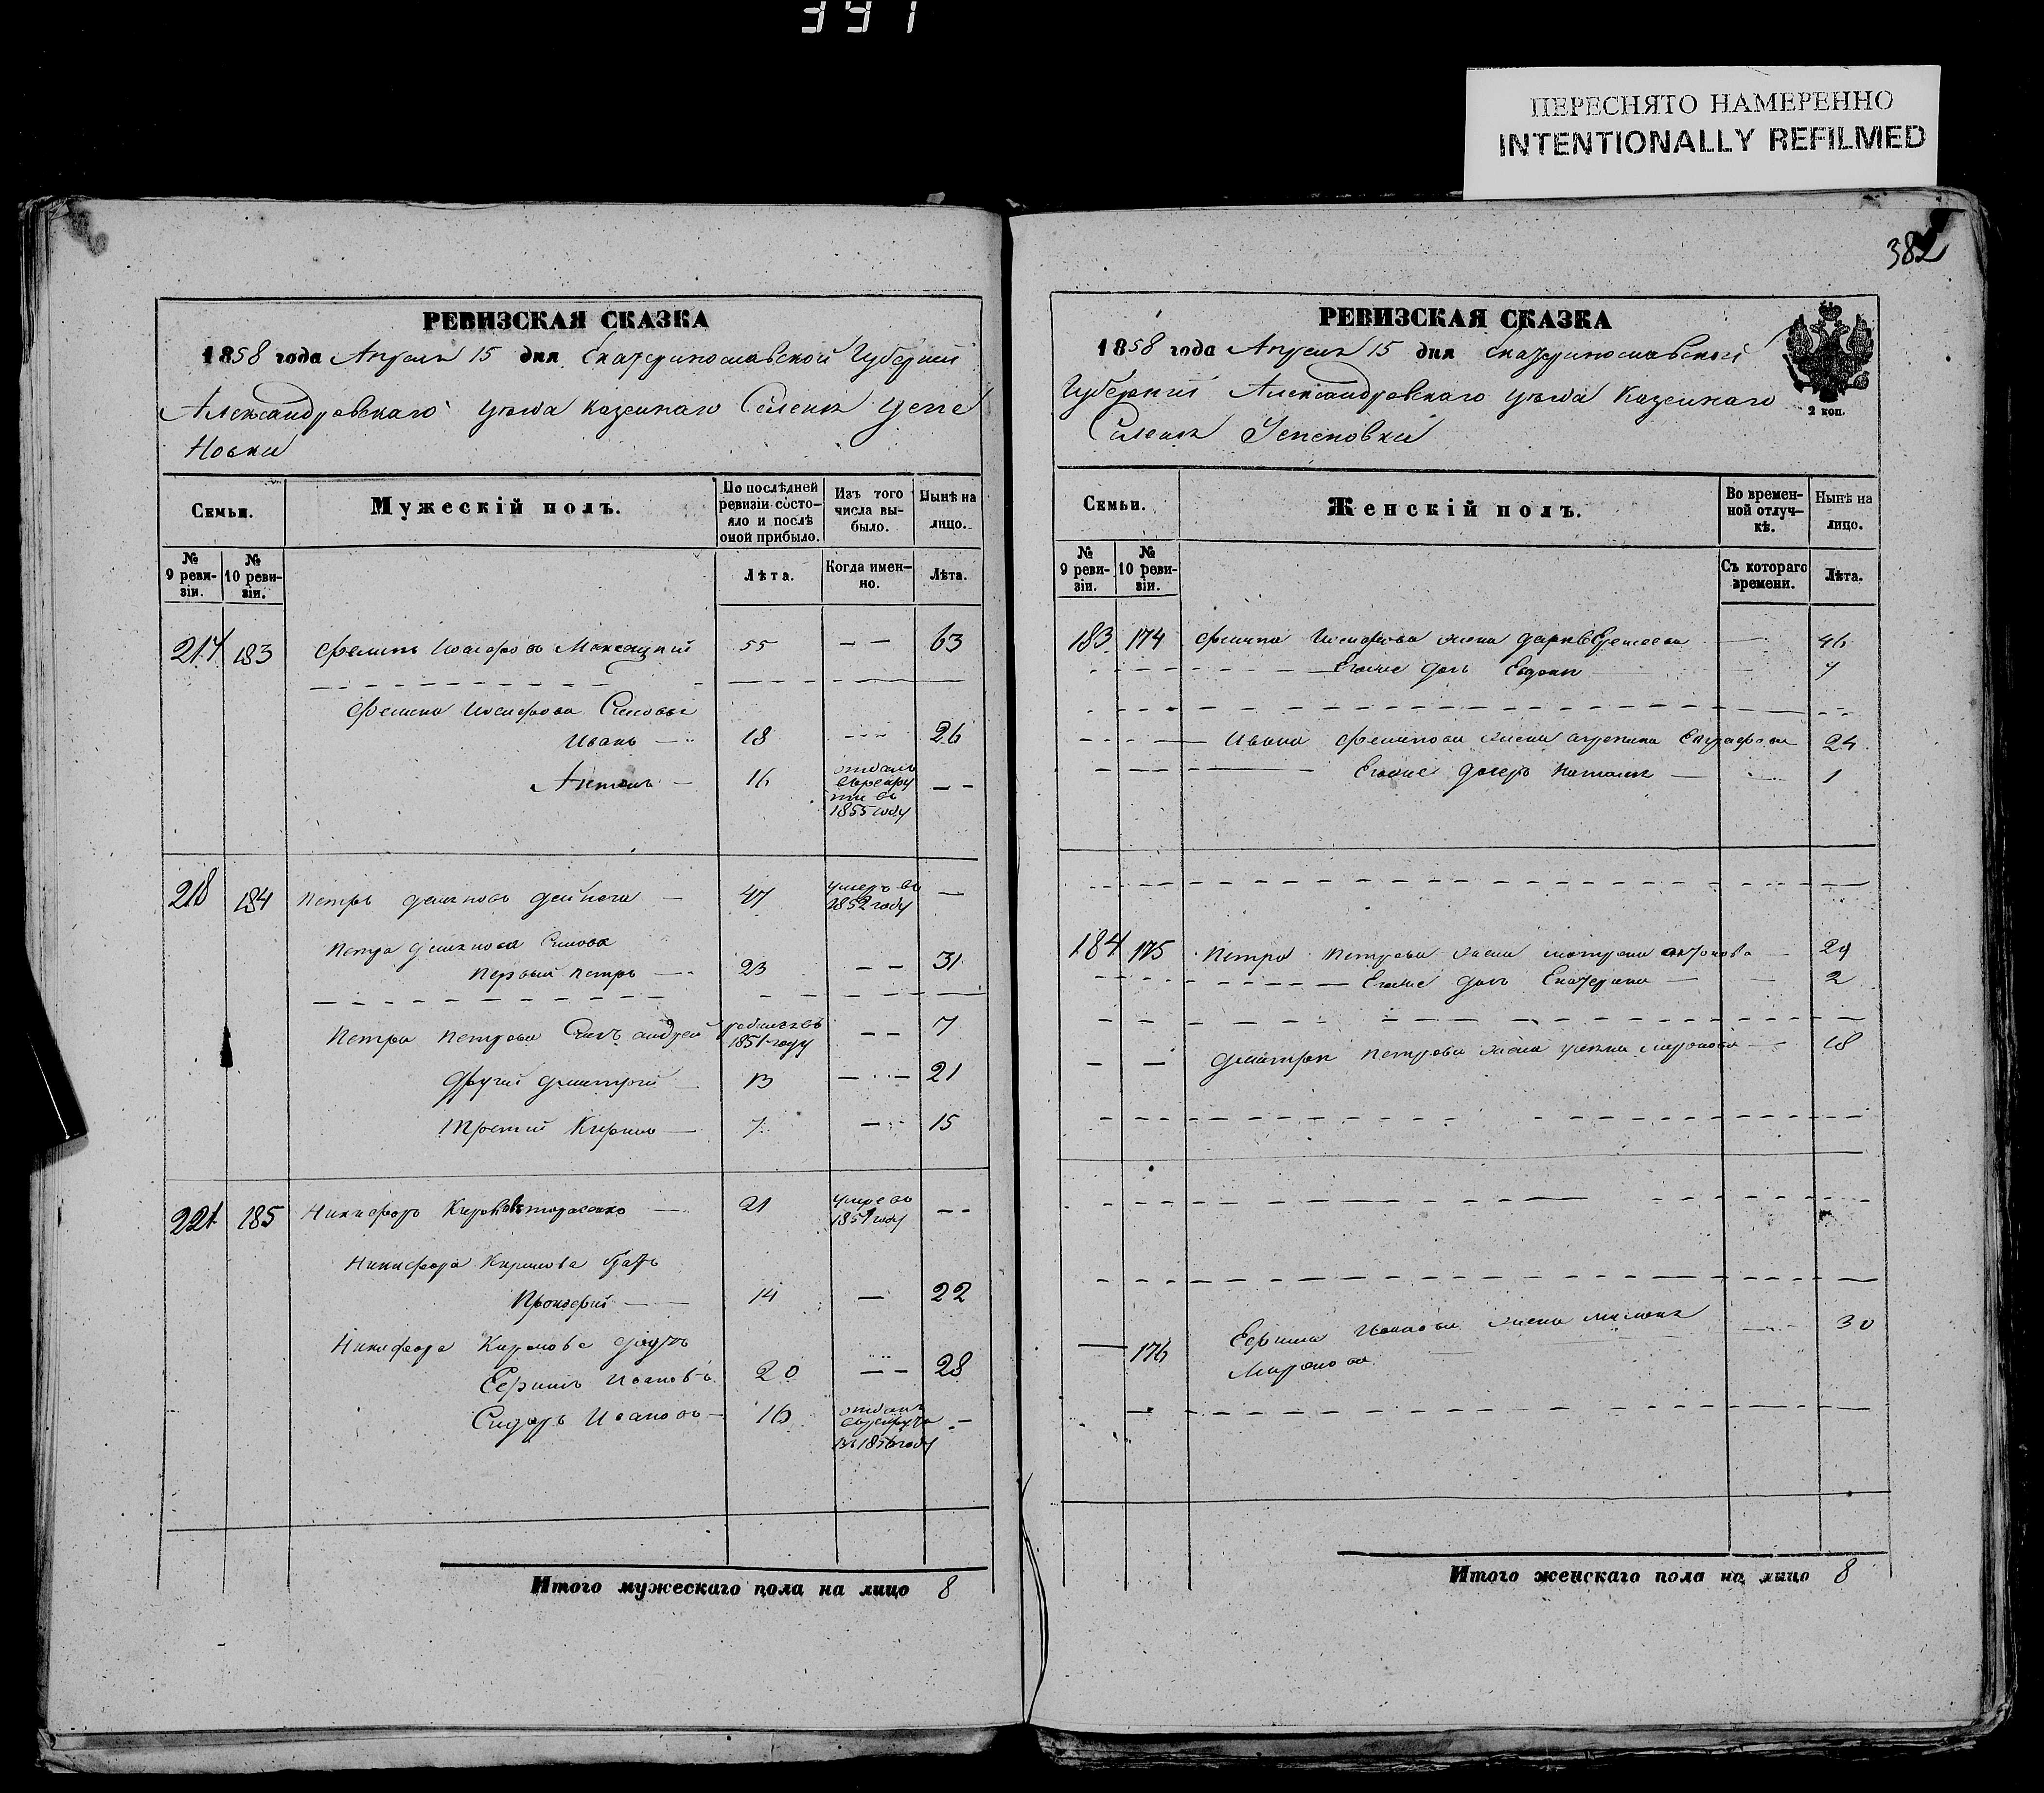 391
ПЕРЕСНЯТО НАМЕРЕННО
INTENTIONALLY REFILMED
382
РЕВИЗСКАЯ СКАЗКА
1858 года Апреля 15 дня Екатеринославской Губернии
Александровскаго уезда казеннаго Селения
новки
Семьи.
Мужескій полъ.
По послѣдней ревизіи состояло и послѣ оной прибыло.
Изъ того числа выбыло.
Нынѣ на лицо.
№ 9 ревизіи.
№ 10 ревизіи.
Лѣта.
Когда именно.
Лѣта.
217 183 Филипъ Иосифовъ 55 — — 63
Филипа Иосифова Сыновья
Иванъ — 18 — — — 26
Антонъ — 16 отданъ в рекруты въ 1855 году — —
218 184 Петръ 47 умеръ въ 1852 году —
Петра Сынова
Первый Петръ — 23 — — 31
Петра Петрова Сынъ Андрей родился въ 1851 году — — 7
Другій Дмитрій 13 — — 21
Третий Кирило — 7 — 15
221 185 Никифоръ 21 умре въ году — —
Никифора Кирилова братъ
Прокофій — 14 — 22
Никифора Кирилова
Ефимъ Ивановъ 20 — — 28
Сидоръ Ивановъ — 16 отданъ в рекруты году —
Итого мужескаго пола на лицо 8
РЕВИЗСКАЯ СКАЗКА
1858 года Апреля 15 дня Екатеринославской
Губернии Александровскаго уезда Казеннаго
Селения
2 коп.
Семьи.
Женскій полъ.
Во временной отлучкѣ.
Нынѣ на лицо.
№ 9 ревизіи.
№ 10 ревизіи.
Съ котораго времени.
Лѣта.
183 174 Филипа Иосифова жена — 46
Егоже дочь 7
Ивана Филипова жена 24
Егоже дочерь Наталия — 1
184 175 Петра Петрова жена Матрона Антонова — 29
Егоже дочь Екатерина — 2
Дмитрия Петрова жена Миронова — 18
176 Ефима Иванова жена 30
Миронова
Итого женскаго пола на лицо 8